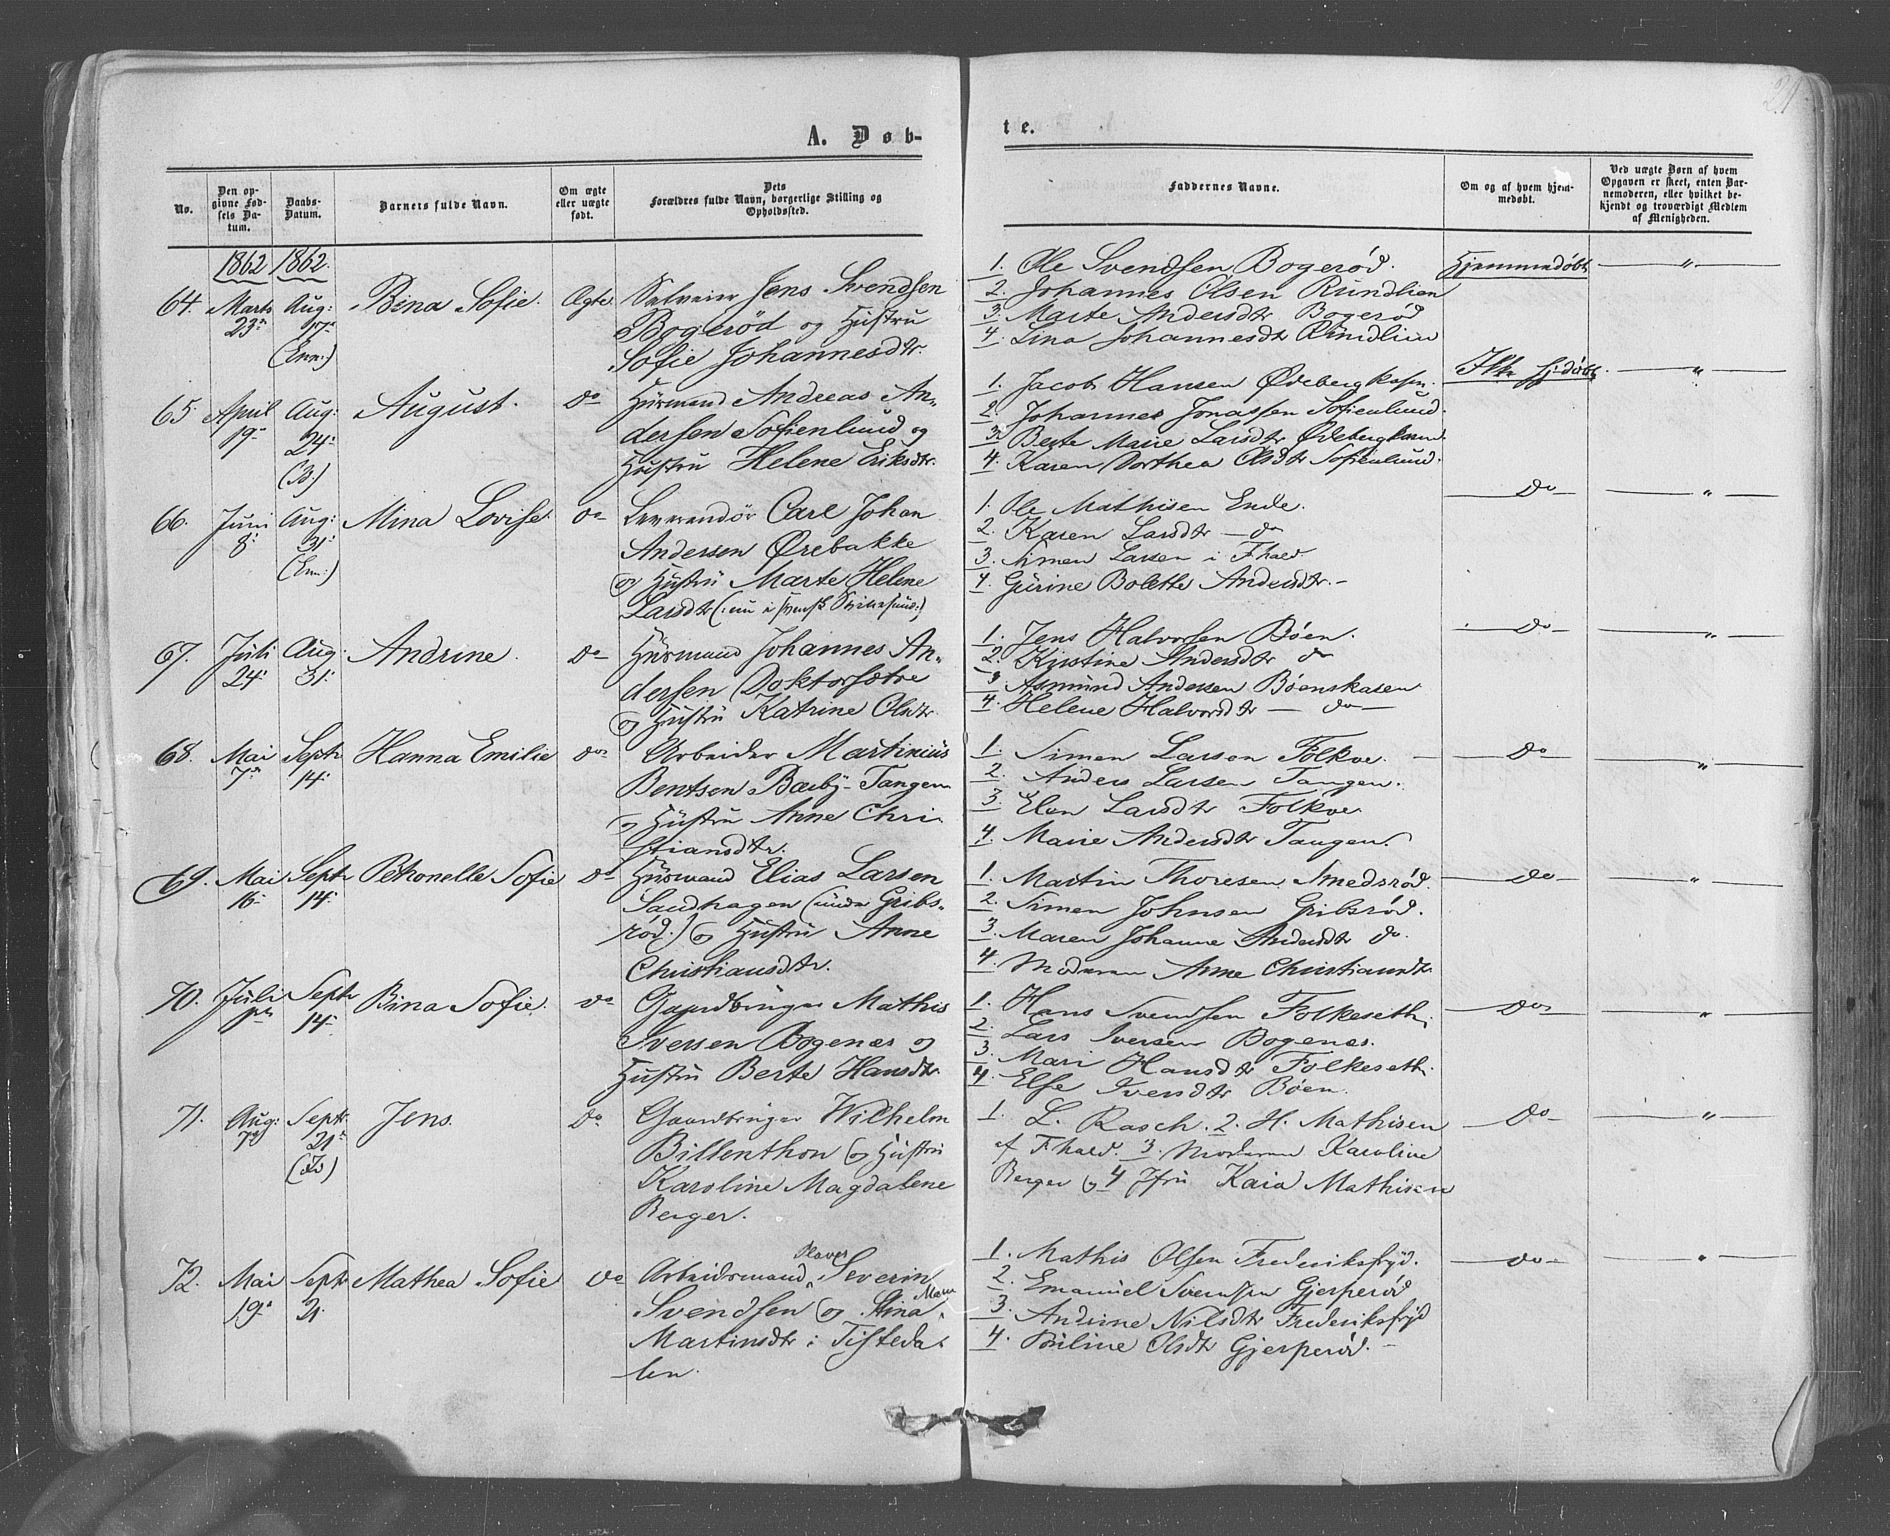 21
A. Døb-
te.
No.
Den op-
givne Fød-
sels Da-
tum.
Daabs-
Datum.
Barnets fulde Navn.
Om ægte
eller uægte
født.
Dets
Forældres fulde Navn, borgerlige Stilling og
Opholdssted.
Faddernes Navne.
Om og af hvem hjem-
medøbt.
Ved uægte Børn af hvem
Opgaven er skeet, enten Bar-
nemoderen, eller hvilket be-
kjendt og troværdigt Medlem
af Menigheden.
1862 1862.
64. Marts 23de Aug: 17de (Enn:) Bina Sofie. Ægte
Selveier Jens Svendsen
Bogerød og Hustru
Sofie Johannesdtr.
1. Ole Svendsen Bogerød.
2. Johannes Olsen Rundlien
3. Marte Andersdtr Bogerød
4. Lina Johannesdtr Rundlien
Hjemmedøbt — " —
65. April 19de Aug: 24de August. do
Husmand Andreas An-
dersen Sofienlund og
Hustru Helene Eriksdtr.
1. Jacob Hansen Ødebergkasen.
2. Johannes Jonassen Sofienlund.
3. Berte Marie Larsdtr Ødebergkasen
4. Karen Dorthea Olsdtr Sofienlund.
Ikke hjdøbt — " —
66. Juni 8de Aug: 31de (Enn:) Mina Lovise do
Leverendør Carl Johan
Andersen Ørebakke
og Hustru Marte Helene
Larsdtr (: nu i svensk
1. Ole Mathisen Ende.
2. Karen Larsdtr — do
3. Simen Larsen i Fhald
4. Gurine Bolette Andersdtr. –
— do — — " —
67. Juli 24de Aug 31de Andrine. do
Husmand Johannes An-
dersen Doktorsætre
og Hustru Katrine Olsdtr.
1. Jens Halvorsen Bøen.
2. Kirstine Andersdtr do
3. Asmund Andersen Bøenskasen
4. Helene Halvorsdtr — do —
— do — — " —
68. Mai 7de Septr 14de Hanna Emilie do
Arbeider Martinius
Bentsen Bærby-Tangen
og Hustru Anne Chri-
stiansdtr.
1. Simen Larsen Folkve.
2. Anders Larsen Tangen.
3. Elen Larsdtr Folkve
4. Marie Andersdtr Tangen.
— do — — " —
69. Mai 16de Septr 14de Petronelle Sofie do
Husmand Elias Larsen
Sandhagen (under Gribs-
rød.) og Hustru Anne
Christiansdtr.
1. Martin Thoresen Smedsrød.
2. Simen Johnsen Gribsrød.
3. Maren Johanne Andersdtr do.
4. Moderen Anne Christiansdtr
— do — — " —
70. Juli Septr 14de Bina Sofie. do
Gaardbruger Mathis
Iversen Bogenæs og
Hustru Berte Hansdtr.
1. Hans Svendsen Folkeseth.
2. Lars Iversen Bogenæs.
3. Mari Hansdtr Folkeseth.
4. Else Iversdtr Bøen.
— do — — " —
71. Aug: 7de Septr. 21de Jens. do
Gaardbruger Wilhelm
Billenthon og Hustru
Karoline Magdalene
Berger.
1. L. Rasch. 2. H. Mathisen
af Fhald. 3. Moderen Karoline
Berger og 4 Jfru Kaia Mathisen
— do — — " —
72. Mai 19de Septr 21 Mathea Sofie do
Arbeidsmand Severin
Svendsen og Stina
Martinsdtr i Tisteda-
len.
1. Mathis Olsen Frederiksfryd.
2. Emanuel Svensen Gjerperød
3. Andrine Nilsdtr Frederiksfryd
4. Pauline Olsdtr Gjerperød. –
— do — — " —